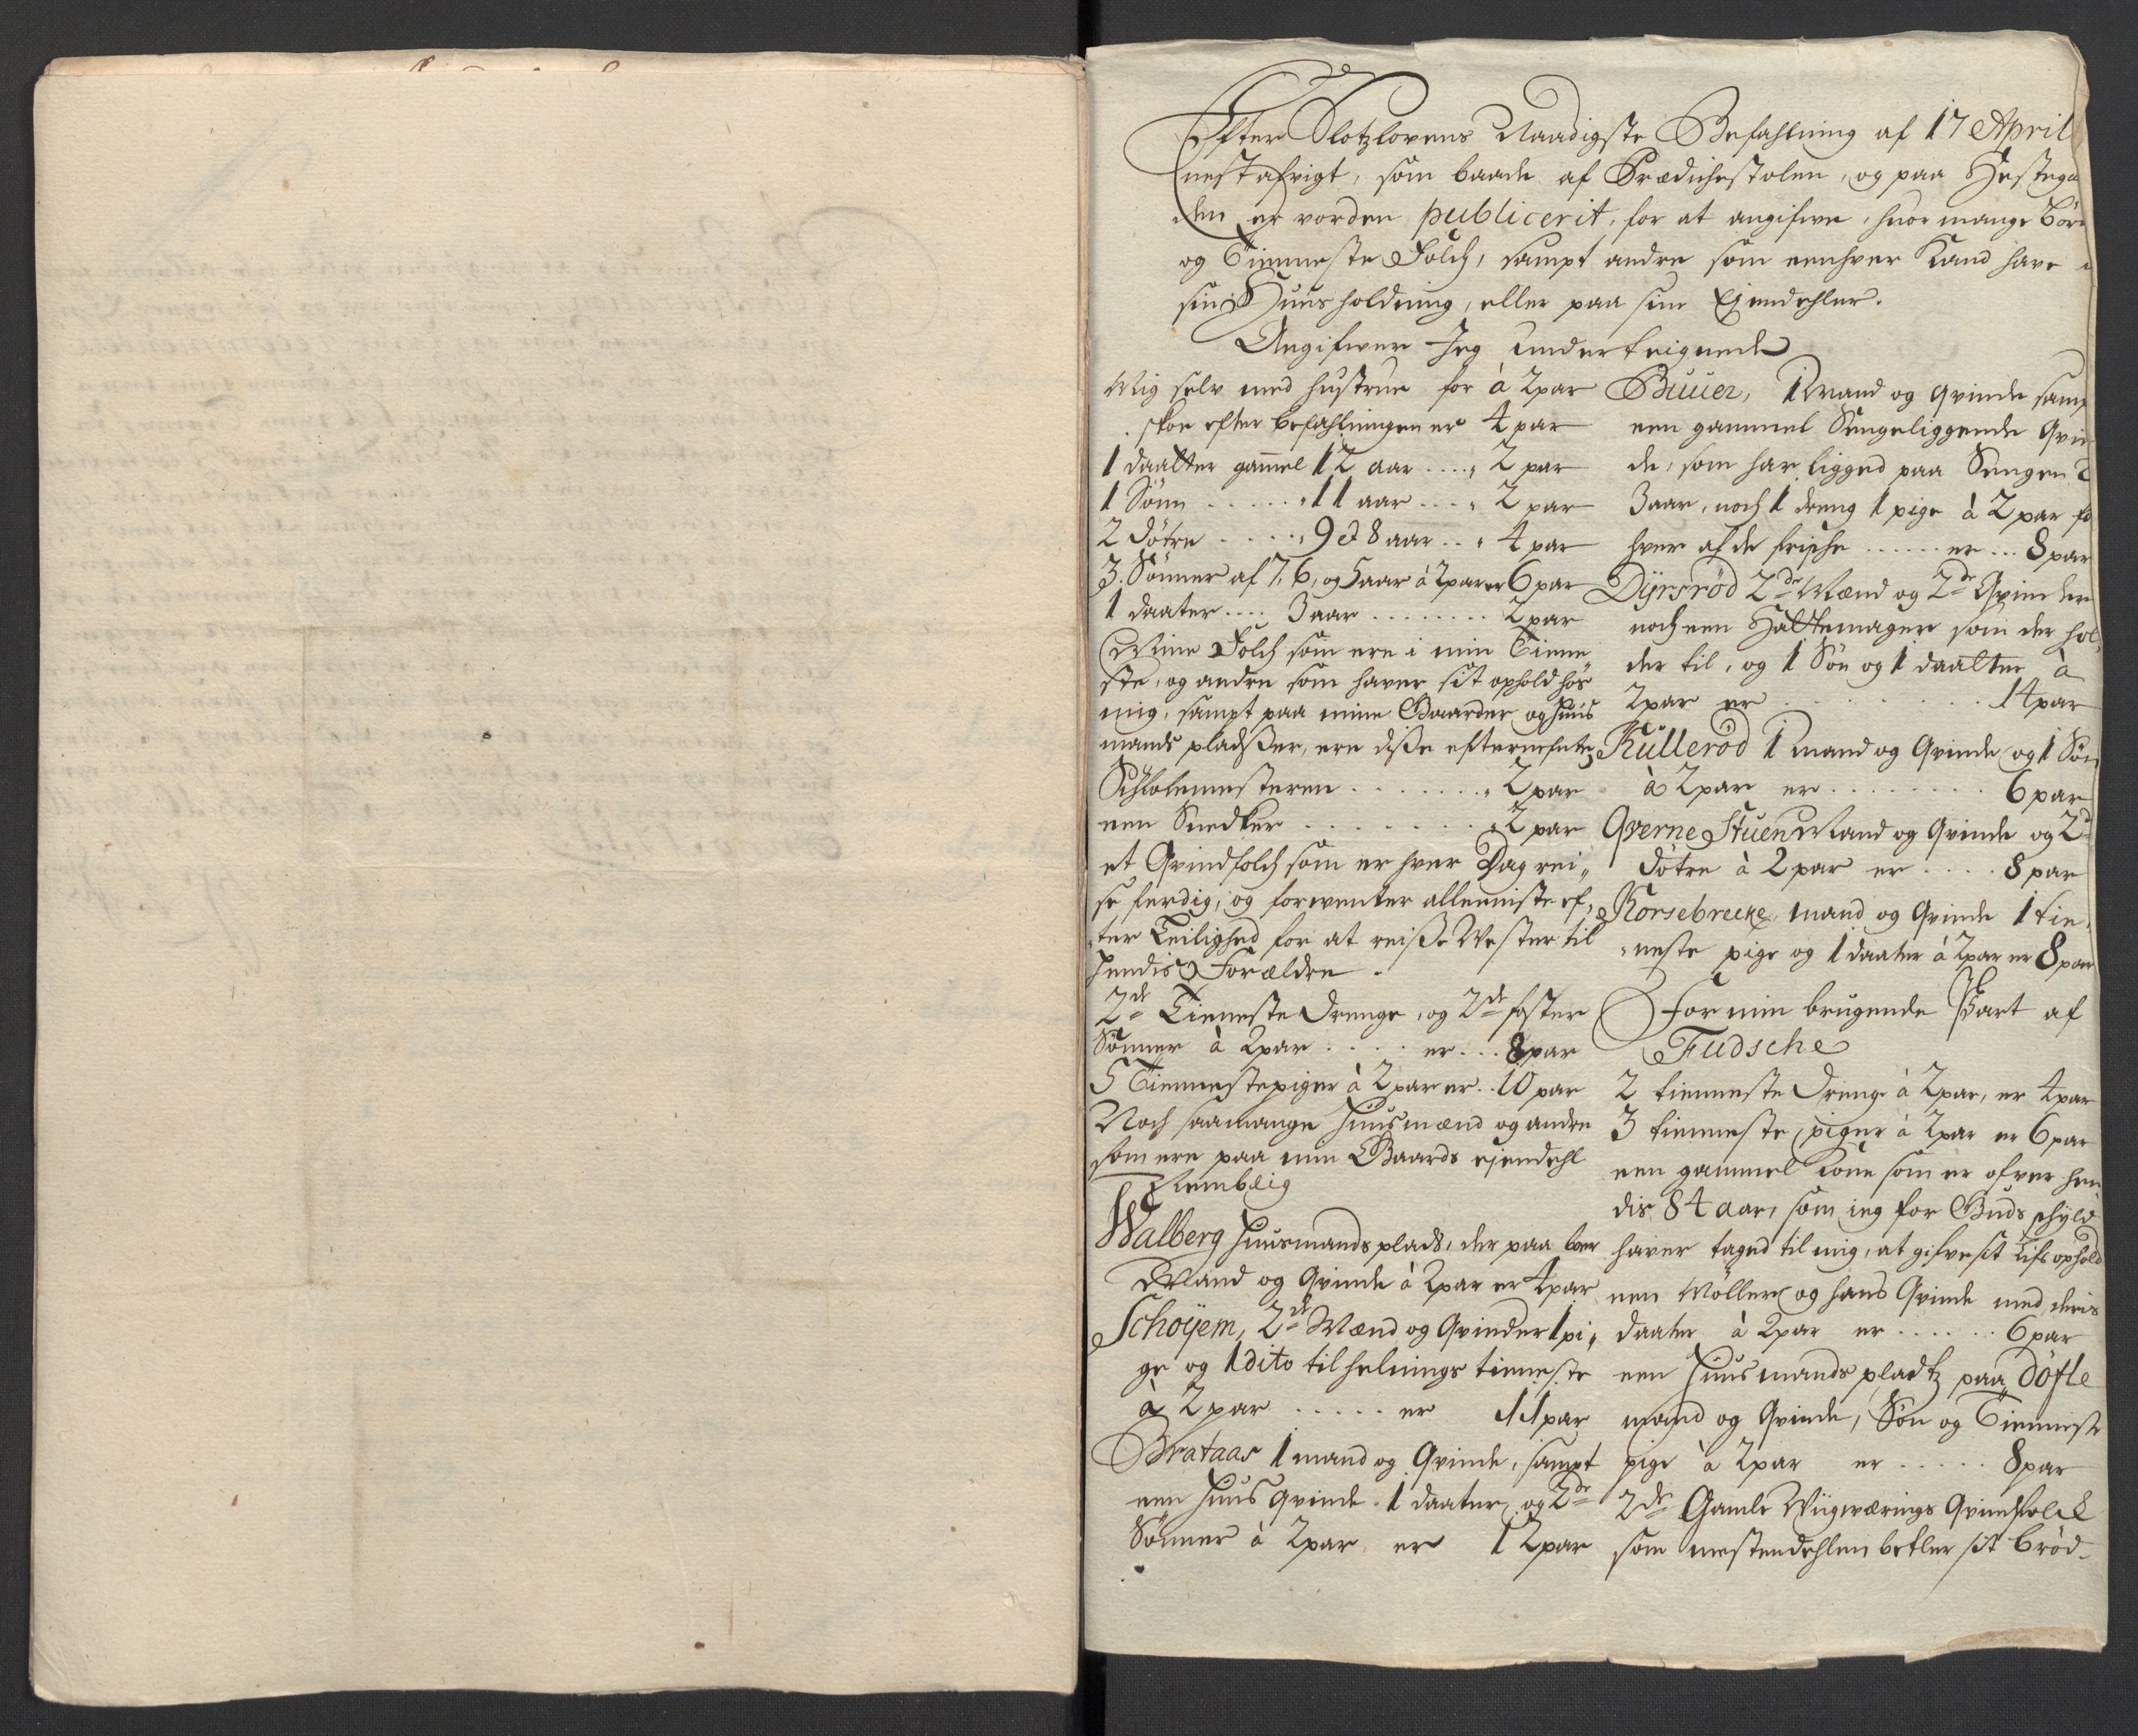 Efter Slotzlovens Naadigste Befahlning af 17 April
nest afvigt, som baade af Prædichestolen, og paa
den er vorden publicerit, for at angifwe, huor mange Börn
og Tienneste Folch, sampt andre som eenhver Kand have i
sin Huusholdning, eller paa sine Ejendehler.
Angifwer Jeg underteignede
Mig selv med hustrue for à 2 par
skoe efter befahlningen er 4 par
1 daatter gammel 12 aar .... 2 par
1 Sönn ...... 11 aar .... 2 par
2 döttre ..... 9 et 8 aar ... 4 par
3. Sönner af 7, 6, og 5 aar à 2 par er 6 par
1 daater .... 3 aar ........ 2 par
Mine Folch som ere i min Tienne
ste, og andre som haver sit ophold hos
mig, sampt paa mine Gaarder og huus
mands pladßer, ere diße efternefnte
Schlolemesteren ....... 2 par
een Snedker ......... 2 par
et Qvindfolch som er hver Dag rei,,
se ferdig, og forwenter alleeniste ef,
ter Leilighed for at reiße Wester til
hendis Forældre.
2de Tieneste Drenge, og 2de foster
Sönner à 2 par .... er ... 8 par
5 Tiennestepiger à 2 par er .. 10 par
Noch saamange huusmænd og andre
som ere paa min Gaards ejendehl
Rembeig
Walberg huusmands plads, der paa boer
Mand og Qvinde à 2 par er 4 par
Schoÿem, 2de Mænd og Qvinder 1 pi,,
ge og 1 dito til helnings tienneste
à 2 par ..... er 11 par
Brataas 1 mand og Qvinde, sampt
een huus qvinde. 1 daatter og 2de
Sönner à 2 par er 12 par
Buuer, 1 Mand og qvinde samp
een gammel Sengeliggende Qvin
de, som har ligged paa Sengen
3 aar, noch 1 dreng 1 pige à 2 par fo
hver af de frische ..... er ... 8 par
Dÿrsröd 2de Mænd og 2de Qvinder
noch een Hattemager som der hol,
der til, og 1 Sön og 1 daatter à
2 par er ........ 14 par
Kulleröd 1 mand og Qvinde og 1 Sön
à 2 par er ........ 6 par
Qverne Stuen Mand og Qvinde og 2de
döttre à 2 par er .... 8 par
Korsebrecke, mand og Qvinde 1 tie,
neste pige og 1 daater à 2 par er 8 par
For min brugende Part af
Fudsche
2 tienneste Drenge à 2 par, er 4 par
3 tienneste piger à 2 par er 6 par
een gammel Kone som er ofver hen
dis 84 aar, som ieg for Guds schyld
haver taged til mig, at gifve sit Lifs ophold
een Möller og hans Qvinde med deris
daater à 2 par er ...... 6 par
een huusmands pladtz paa Döfle
mand og Qvinde, Sön og Tienneste
pige à 2 par er ..... 8 par
2de Gamle Qvindfolck
som mestendehlen betler sit bröd.